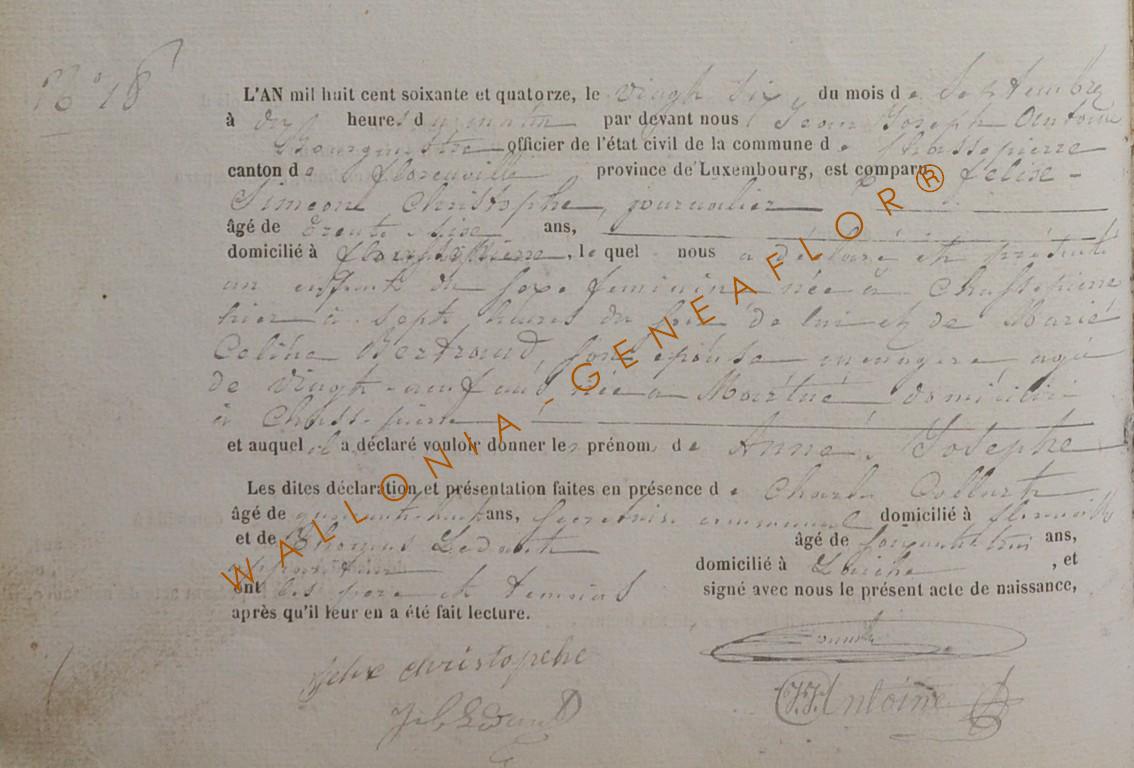 N° 18
L'AN mil huit cent soixante et quatorze, le vingt six du mois de Septembre
à dix heures du matin par devant nous Jean Joseph Antoine
Bourgmestre officier de l'état civil de la commune de Chassepierre
canton de Florenville province de Luxembourg, est comparu Felix
Simeon Christophe, journalier
âgé de trente ans,
domicilié à Chassepierre, le quel nous a déclaré et présenté
un enfant du sexe feminin née à Chassepierre
hier à sept heures du soir de lui et de Marie
Celine Bertrand, son épouse menagère agée
de vingt-neuf ans née à Martué domiciliée
à Chassepierre
et auquel il a déclaré vouloir donner les prénom de Anne, Josephe
Les dites déclaration et présentation faites en présence de Charles Collart
âgé de quarante huit ans, secretaire communal domicilié à florenville
et de Thomas Ledant âgé de soixante trois ans,
domicilié à Laiche, et
ont les père et temoins signé avec nous le présent acte de naissance,
après qu'il leur en a été fait lecture.
felix christophe
J J Antoine
WALLONIA-GENEAFLOR®